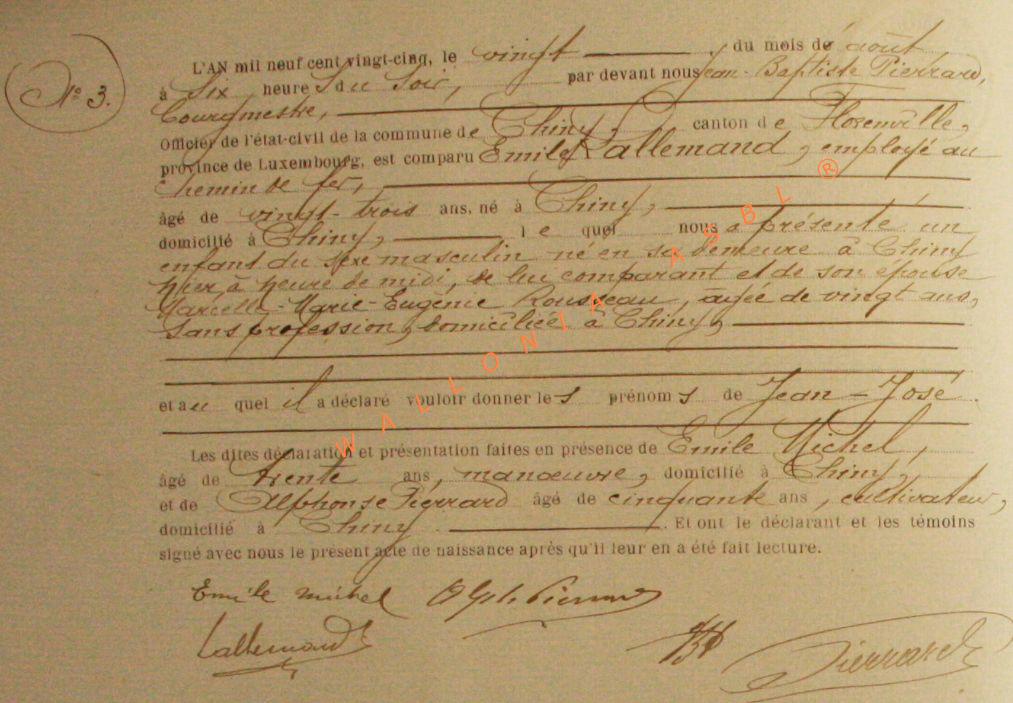 N° 3.
L'AN mil neuf cent vingt-cinq, le vingt, du mois de août
à Six heures du Soir, par devant nous Jean-Baptiste Pierrard,
Bourgmestre,
Officier de l'état-civil de la commune de Chiny, canton de Florenville,
province de Luxembourg, est comparu Emile Lallemand, employé au
chemin de fer,
âgé de vingt-trois ans, né à Chiny,
domicilié à Chiny, lequel nous a présenté un
enfant du sexe masculin né en sa demeure à Chiny
hier à heure de midi, de lui comparant et de son épouse
Marcelle-Marie-Eugénie Rousseau, agée de vingt ans,
sans profession, domiciliée à Chiny,
et auquel il a déclaré vouloir donner les prénoms de Jean-José.
Les dites déclaration et présentation faites en présence de Emile Michel,
âgé de trente ans, manœuvre, domicilié à Chiny,
et de Alphonse Pierrard âgé de cinquante ans, cultivateur,
domicilié à Chiny. Et ont le déclarant et les témoins
signé avec nous le présent acte de naissance après qu'il leur en a été fait lecture.
Emile Michel Alph. Pierrard
Lallemand Pierrard
WALLONIA ASBL ®